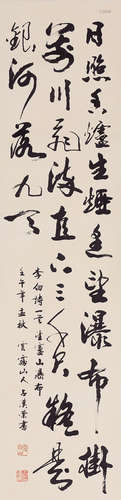 日照香爐生煙遙望瀑布掛
前川飛流直下三千尺疑是
銀河落九天
李白詩一首望廬山瀑布
壬午年孟秋 霧山人 書